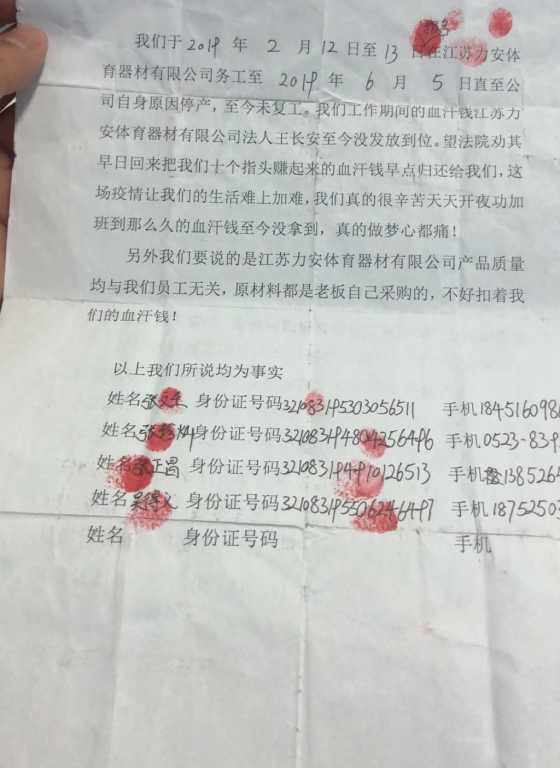 我们于2019年2月12日至13日在江苏力安体
育器材有限公司务工至2019年6月5日直至公
司自身原因停产，至今未复工。我们工作期间的血汗钱江苏力
安体育器材有限公司法人王长安至今没发放到位。望法院劝其
早日回来把我们十个指头赚起来的血汗钱早点归还给我们，这
场疫情让我们的生活难上加难，我们真的很辛苦天天开夜功加
班到那么久的血汗钱至今没拿到，真的做梦心都痛！
另外我们要说的是江苏力安体育器材有限公司产品质量
均与我们员工无关，原材料都是老板自己采购的，不好扣着我
们的血汗钱！
以上我们所说均为事实
姓名张 身份证号码321083195303056511 手机1845160986
姓名张 身份证号码321083194804256496 手机0523-839
姓名张正昌 身份证号码321083194910126513 手机1385264
姓名吴 身份证号码321083195506246497 手机18752503
姓名 身份证号码 手机